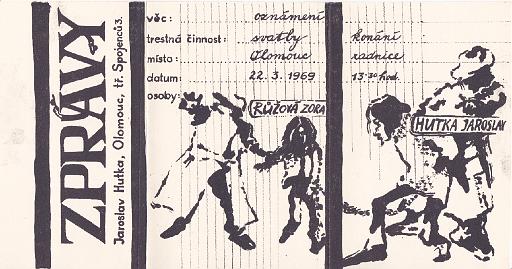 ZPRÁVY
Jaroslav Hutka, Olomouc, tř. Spojenců 3.
věc: oznámení
trestná činnost: svatby konání
místo: Olomouc radnice
datum: 22. 3. 1969 13³⁰ hod.
osoby:
RŮŽOVÁ ZORA
HUTKA JAROSLAV